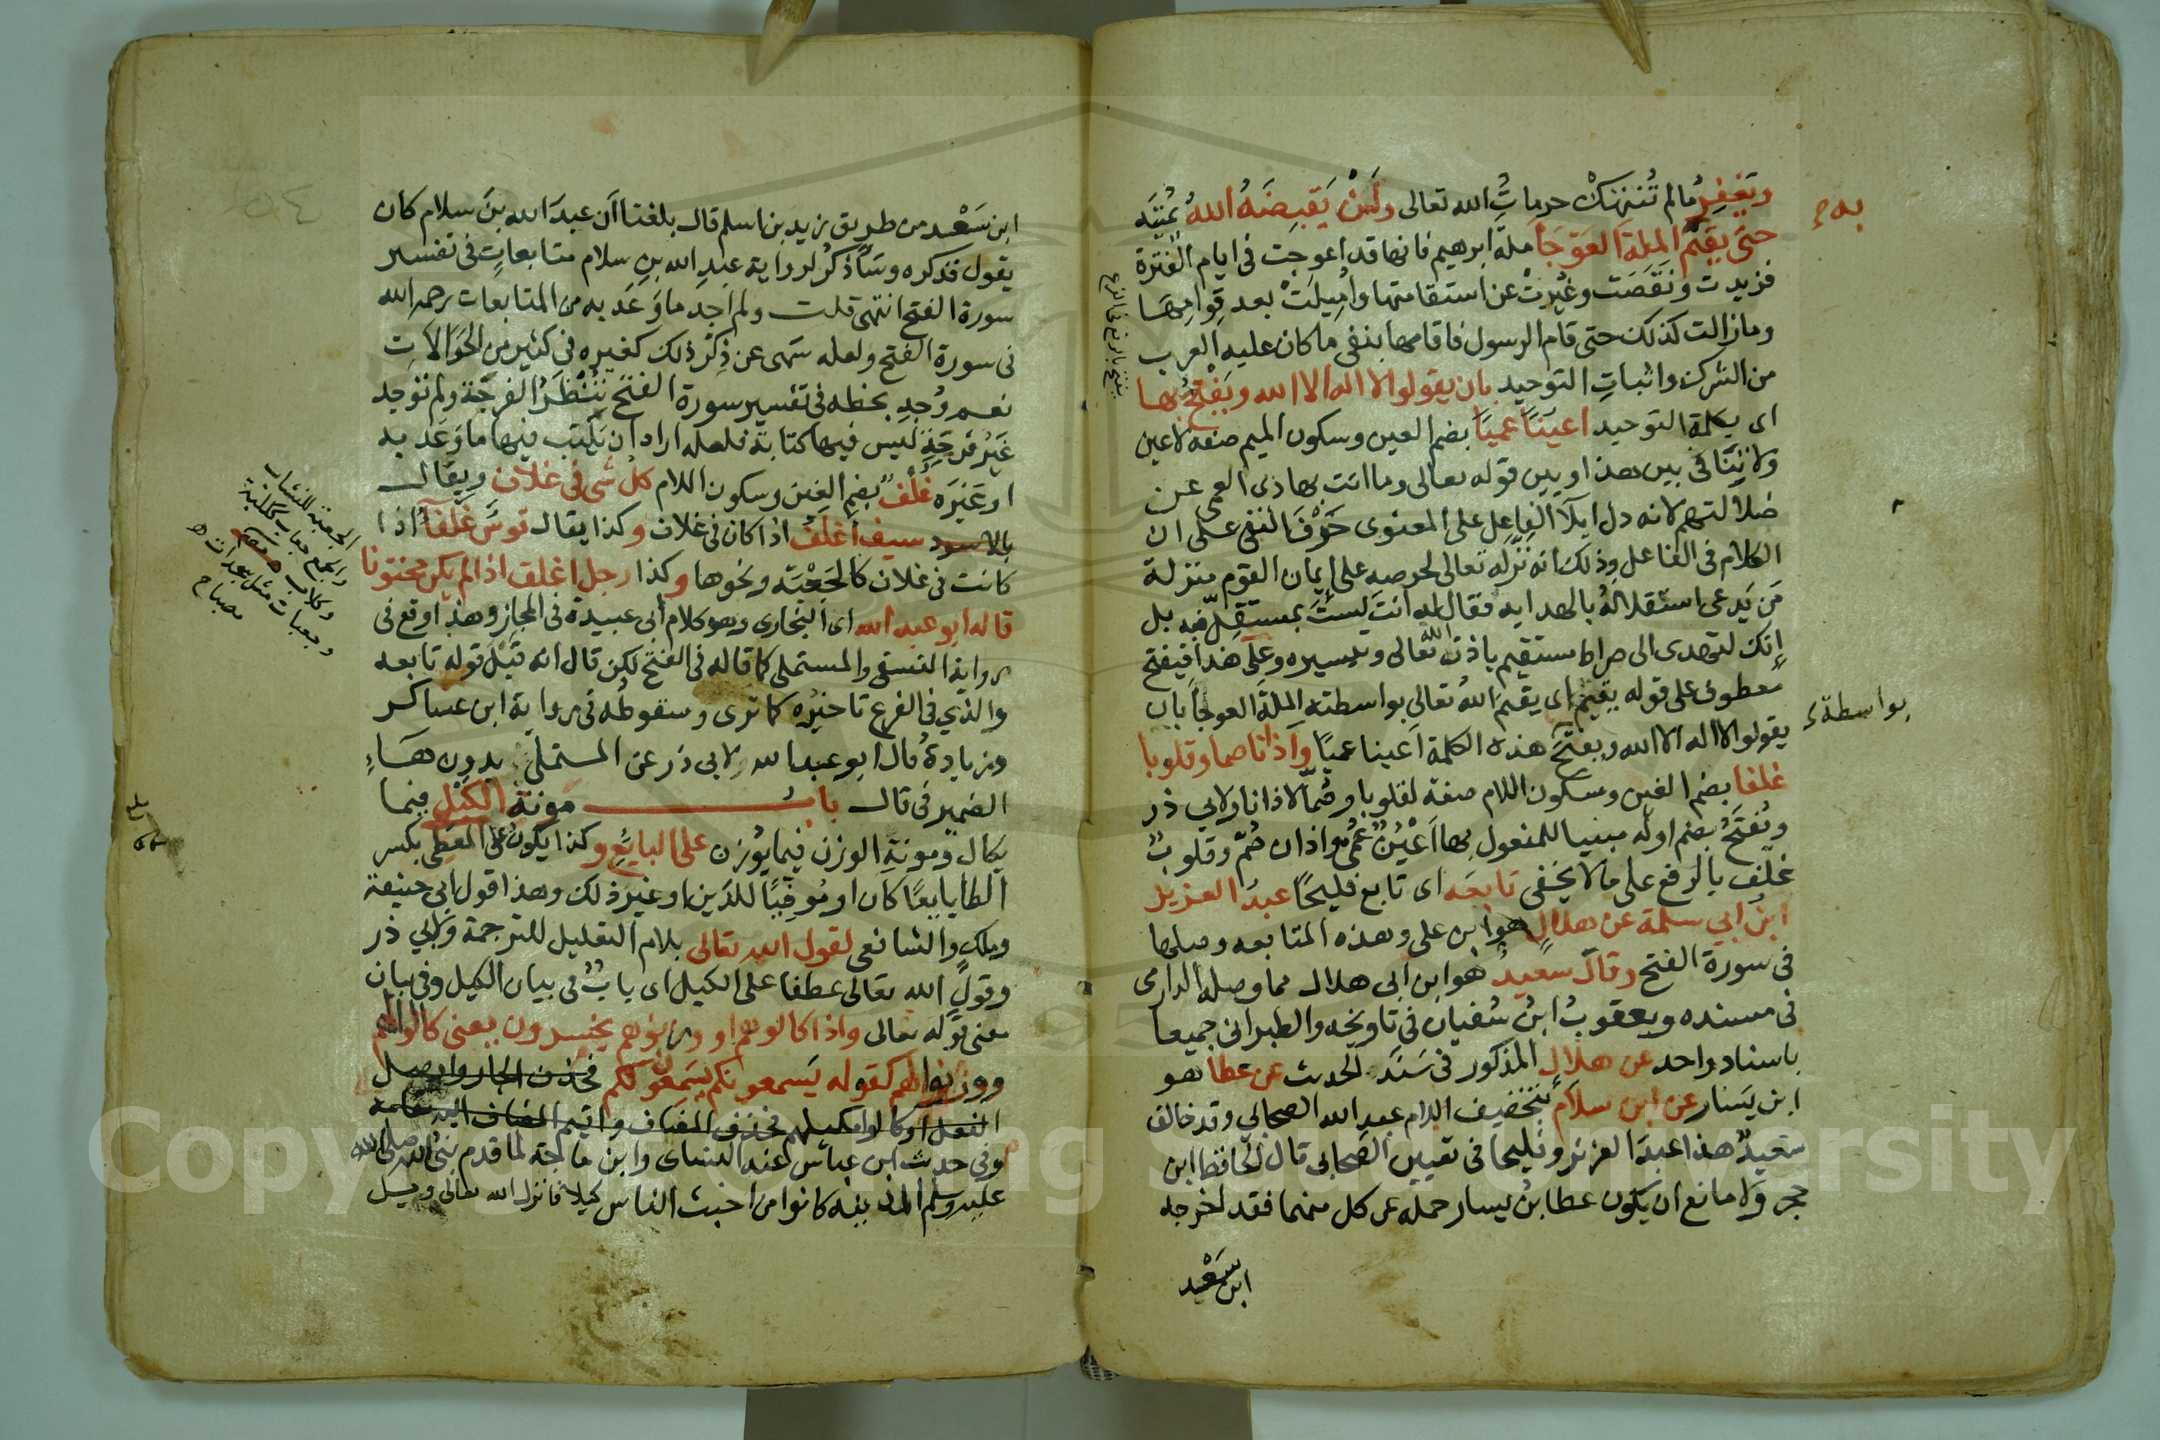 ويغفر مالم تُنتهَكْ حرماتُ الله تعالى ولَنْ يَقبِضَهُ اللهُ يُميتَه
حتى يقيم الملة العَوْجَا ملة ابرهيم فانها قد اعوجت فى ايام الفَتْرة
فزيدت ونَقَصَت وغُيِّرتْ عن استقامتها واُميلَتْ بعد قِوامِهَا
ومازالت كذلك حتى قام الرسول فاقامها بنفى ما كان عليه العرب
من الشرك واثباتِ التوحيد بان يقولوا لا اله الا الله ويَفْتَحُ بها
اى بكلمة التوحيد اعينًا عميًا بضم العين وسكون الميم صفة لاعين
ولا تنافى بين هذا وبين قوله تعالى وما انت بهادى العمى عن
ضلالتهم لانه دل ايلآ الفاعِلِ على المعنوى حَرْفَ النفى على ان
الكلام فى الفاعل وذلك انه نَزَّله تعالى لحرصه على إيمان القوم منزلة
مَن يَدعى استقلالَهُ بالهداية فقال له انتَ لستَ بمستقِلٍّ فيه بل
إنك لتهدى الى صراط مستقيم باذن الله تعالى وتيسيره وعلى هذا فيفتح
معطوف على قوله يقيم اى يقيم اللهُ تعالى بواسطته الملة العوجا بان
يقولوا لا اله الا الله ويفتحَ بهذه الكلمة اعينا عميًا واَذانا صما وقلوبا
غلفا بضم الغين وسكون اللام صفة لقلوبا وصُمًّا لاذانا ولابي ذر
ويُفتَحُ بضم اوله مبنيا للمفعول بها اَعْيُنٌ عُمْىٌ واذان صُمٌّ وقلوبٌ
غلف بالرفع على مالا يخفى تابعَه اى تابع فليحًا عبدُ العزيز
ابنُ ابي سلمة عن هلالٍ هو ابن على وهذه المتابعه وصلها
فى سورة الفتح وقال سعيدٌ هو ابن ابى هلال مما وصله الدارمى
فى مسنده ويعقوبُ ابنُ سُفيان فى تاريخه والطبرانى جميعا
باسناد واحد عن هلال المذكور فى سَنَد الحديث عن عطا هو
ابن يَسار عن ابن سلاَم بتخفيف اللام عبد الله الصحابي وقد خالف
سعيدٌ هذا عبدَ العزيز وفليحا فى تعيين الصحابى قال الحافظ ابن
حجر ولا مانع ان يكون عطا بنُ يسار حمله عن كل منهما فقد اخرجه
ابن سَعْيد
به
بواسطة
ابن سَعْيد من طريق زيد بن اسلم قال بلغنا أن عبدَ الله بنَ سلام كان
يقول فذكره وسَأذكُرُ لرواية عبدِ الله بنِ سلام متابعاتٍ فى تفسير
سورة الفتح انتهى قلت ولم اجد ما وَعَد به من المتابعات رحمه الله
فى سورة الفتح ولعله سَهى عن ذِكْرِ ذلك كغيره فى كثير من الحَوَالاتِ
نعم وُجِد بخطه فى تفسير سورة الفتح يُنْتَظَرُ الفرجَة ولم توجد
غَيْرُ فُرجَةٍ ليس فيها كتابة فلعله اراد ان يَكْتب فيها ما وَعَد به
او غَيْرَه غُلْفٌ بضم الغين وسكون اللام كل شى فى غلاف ويقال
بالاسود سيف أغلَفُ اذا كان فى غلاف وكذا يقال قوسٌ غَلْفَآُ اذا
كانت فى غلاف كالجَعْبَة ونحوها وكذا رجل اغلف اذا لم يكن مختونا
قاله ابو عبد الله اى البخارى وهو كلام أبى عبيدة فى المجاز وهذا وقع فى
رواية النسفى والمستملى كما قاله فى الفتح لكن قال انه قَبْلَ قوله تابعه
والذي فى الفرع تاخيرُه كما ترى وسقوطُه فى رواية ابن عساكر
وزيادةُ قال ابو عبد الله لابى ذر عن المستملي بدون هَاءِ
الضمير فى قال بابُ مَونةُ الكَيْلِ فيما
يكال ومونةِ الوزن فيما يُوزن على البايع وكذا يكون على المعطى بكسر
الطا بايعًا كان او مُوفيًا للدَين او غيرَ ذلك وهذا قول ابي حنيفة
وملك والشافعى لقول الله تعالى بلام التعليل للترجمة ولابي ذر
وقولِ الله تعالى عطفا على الكيل اى بابٌ فى بيان الكيل وفى بيان
معنى قوله تعالى واذا كالوهم او وزنوهم يخسرون يعنى كالوا لهم
ووزنوا لهم كقوله يَسمعونكم يسمعون لكم فحذف الجار واوصل
الفعل او كالوا مكيلهم فحذف المضاف واقيم المضاف اليه مقامه
وفى حديث ابن عباس عند النساى وابن ماجة لما قدم نبىُّ الله صلى الله
عليه وسلم المدينة كانوا من اخبث الناس كيلا فانزل الله تعالى ويل
الجعبة للنشاب
والجمع جعاب ككلبة
وكلاب
وجعبات مثل سجدات
مصباح